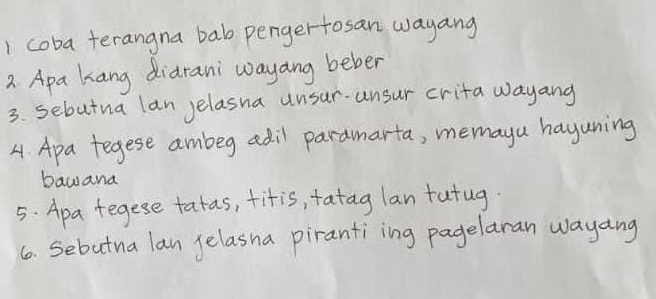 1 Coba terangna bab pengertosan wayang
2 Apa kang diarani wayang beber
3. Sebutna lan jelasna unsur-unsur crita wayang
4. Apa tegese ambeg adil paramarta, memayu hayuning
bawana
5. Apa tegese tatas, titis, tatag lan tutug.
6. Sebutna lan jelasna piranti ing pagelaran wayang